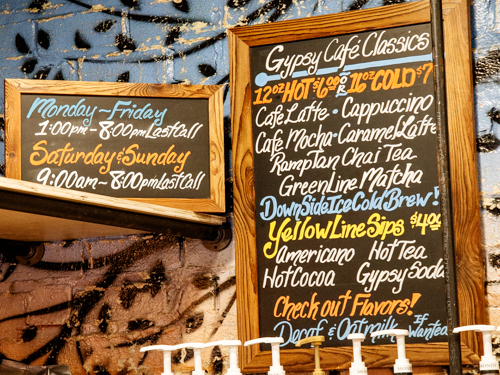 Monday~Friday
1:00pm-8:00pm Last Call
Saturday & Sunday
9:00am~8:00pm Last Call
Gypsy Café Classics
12oz HOT $6.00 OR 16oz COLD $7
Café Latte • Cappuccino
Café Mocha-Caramel Latte
Ramptan Chai Tea
GreenLine Matcha
DownSide Ice Cold Brew!
Yellow Line Sips $4.00
Americano Hot Tea
Hot Cocoa Gypsy Soda
Check out Flavors!
Decaf & Oatmilk If Wanted